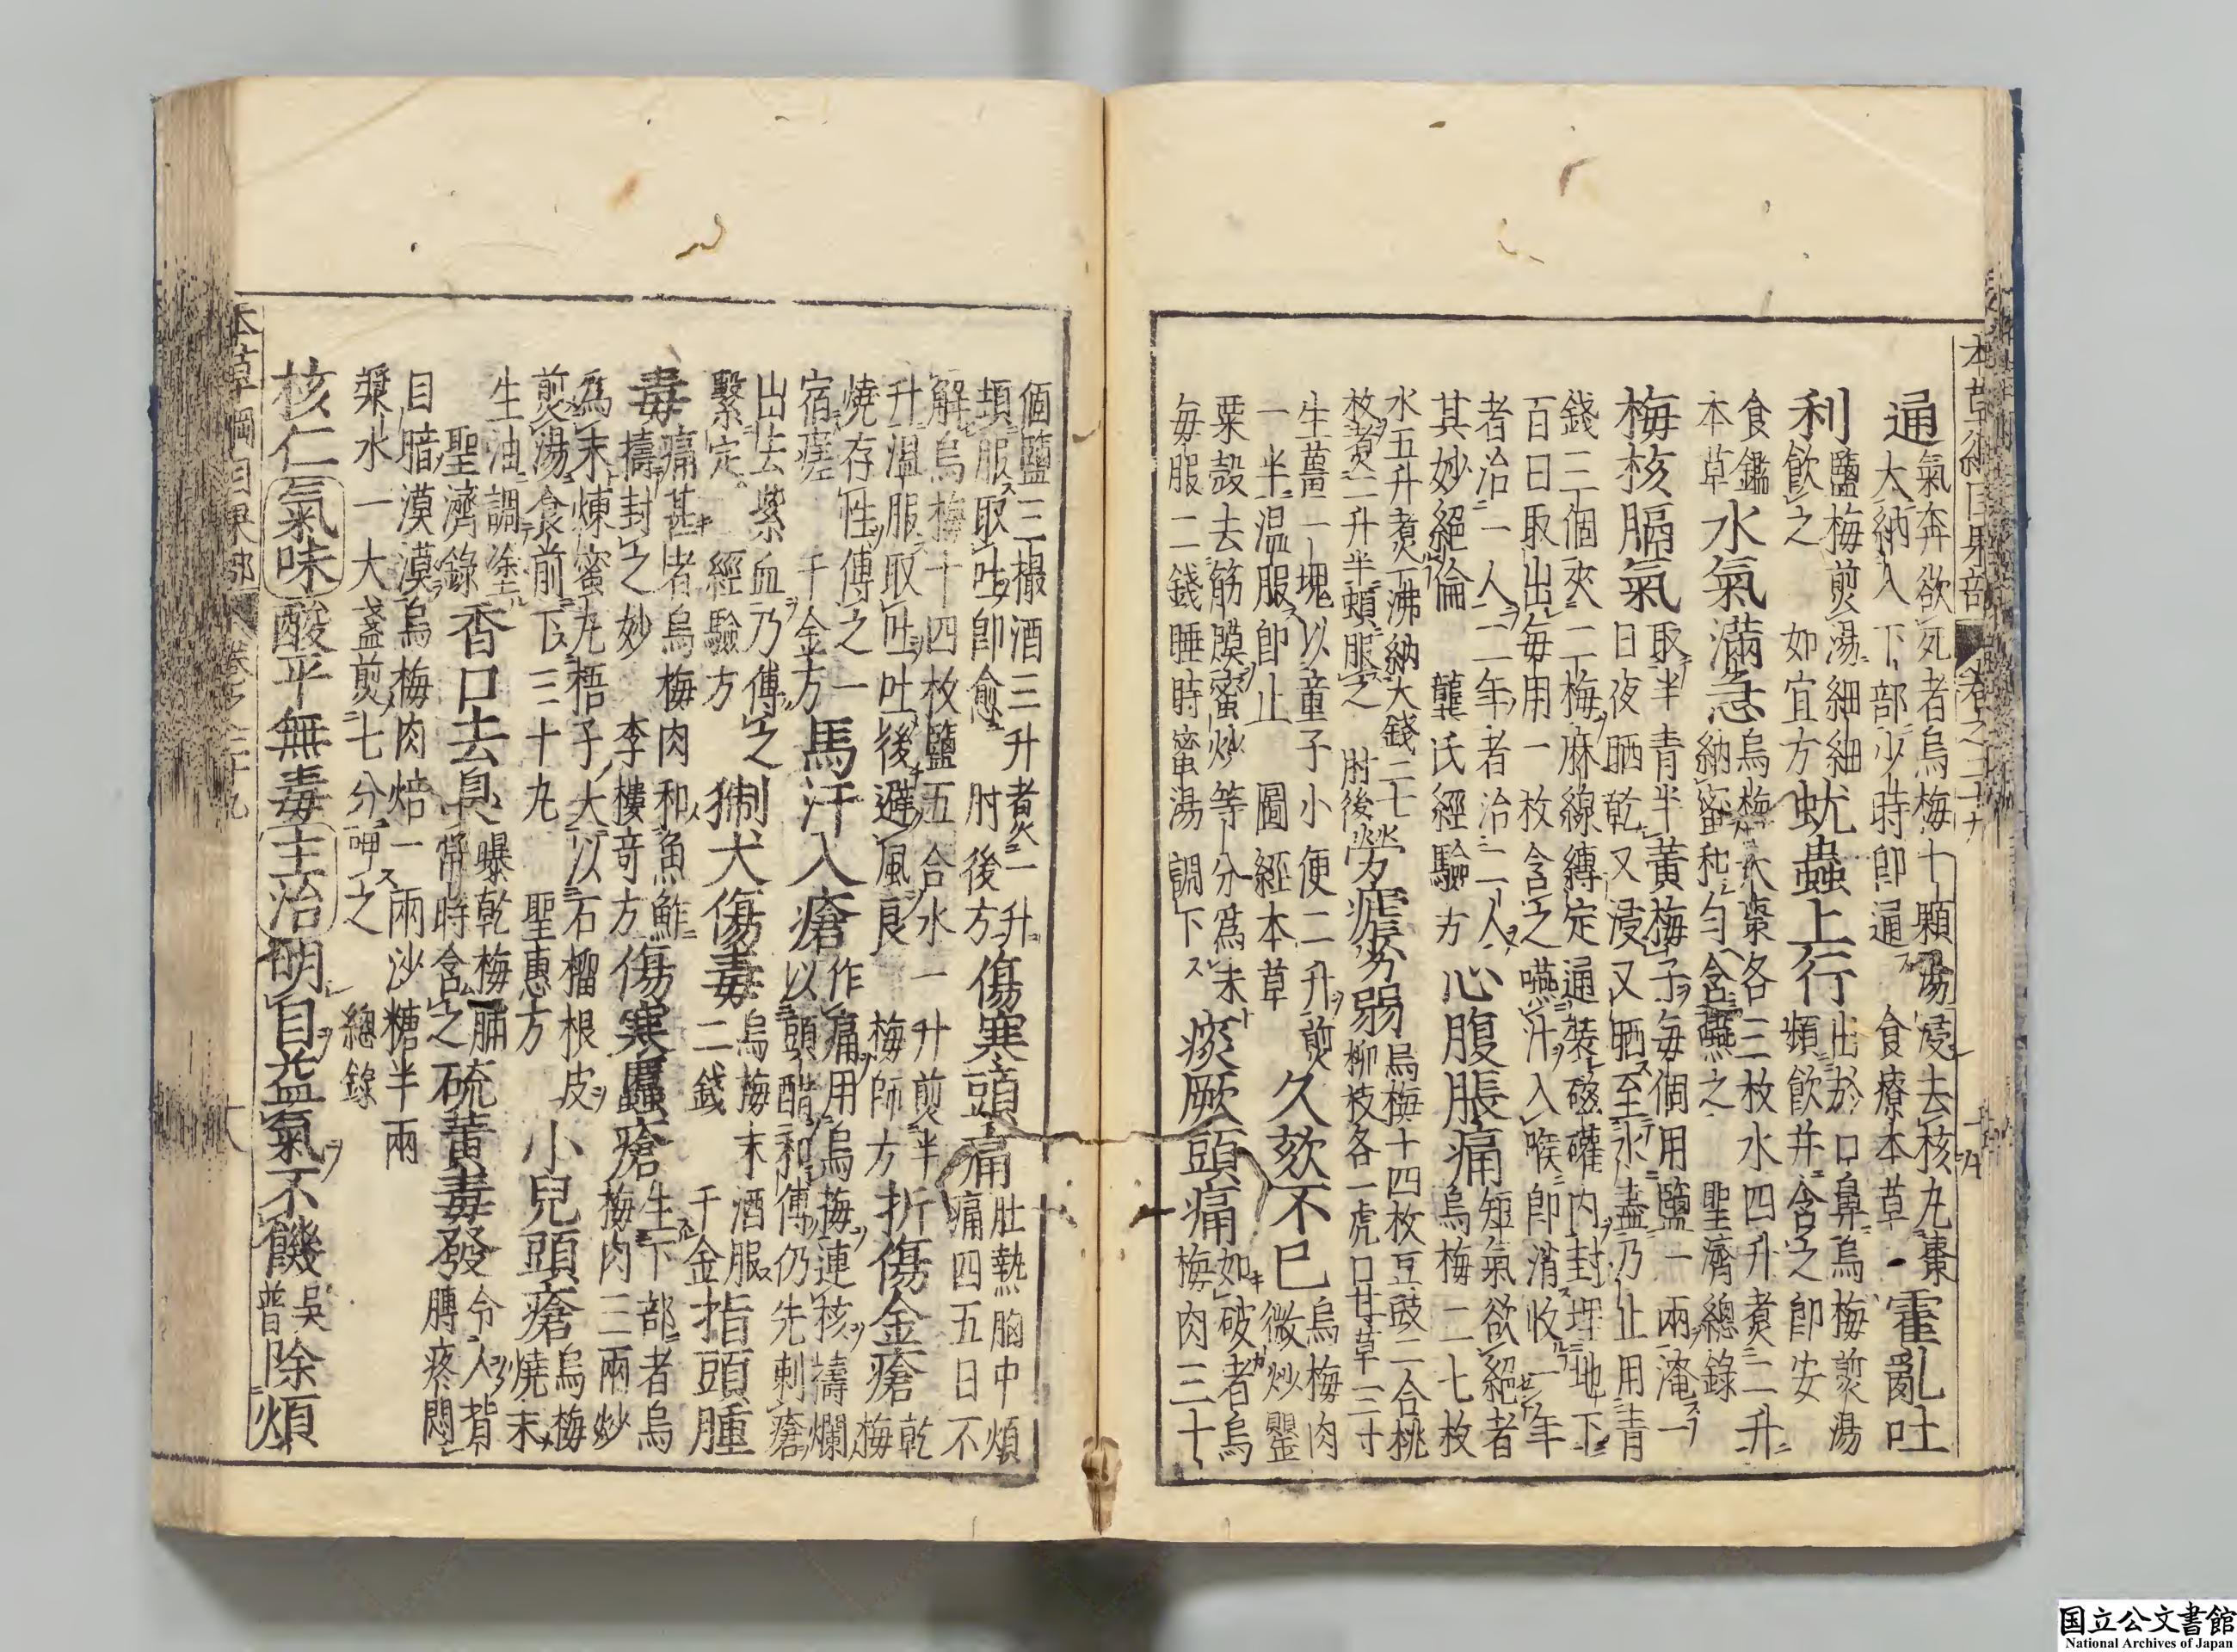 本草綱目果部 卷之二十九
通氣奔欲死者烏梅十顆湯浸去核丸棗
大納入下部少時即通 食療本草 霍亂吐
利鹽梅煎湯細細
飲之 如宜方 蚘蟲上行出於口鼻烏梅煎湯
頻飲并含之即安
食鑑
本草 水氣滿急烏梅大棗各三枚水四升煮二升
納蜜和勻含嚥之 聖濟總錄
梅核膈氣取半青半黃梅子每個用鹽一兩淹一
日夜晒乾又浸又晒至水盡乃止用青
錢三個夾二梅麻線縛定通裝磁礶內封埋地下
百日取出每用一枚含之嚥汁入喉即消收一年
者治一人二年者治二人
其妙絕倫 龔氏經驗方 心腹脹痛短氣欲絕者
烏梅二七枚
水五升煮一沸納大錢二七
枚煮二升半頓服之 肘後 勞瘧劣弱烏梅十四枚豆豉二合桃
柳枝各一虎口甘草三寸
生薑一塊以童子小便二升煎
一半溫服即止 圖經本草 久欬不已烏梅肉
微炒罌
粟殼去筋膜蜜炒等分爲末
每服二錢睡時蜜湯調下 痰厥頭痛如破者烏
梅肉三十
個鹽三撮酒三升煮一升
頓服取吐即愈 肘後方 傷寒頭痛壯熱胸中煩
痛四五日不
解烏梅十四枚鹽五合水一升煎半
升溫服取吐吐後避風良 梅師方 折傷金瘡乾
梅
燒存性傅之一
宿瘥 千金方 馬汗入瘡作痛用烏梅連核擣爛
以頭醋和傅仍先刺瘡
出去紫血乃傅之
繫定 經驗方 猘犬傷毒烏梅末 酒服
二錢 千金 指頭腫
毒痛甚者烏梅肉和魚鮓
擣封之妙 李樓奇方 傷寒䘌瘡生下部者烏
梅肉三兩炒
為末煉蜜丸梧子大以石榴根皮
煎湯食前下三十丸 聖惠方 小兒頭瘡烏梅
燒末
生油調塗
聖濟錄 香口去臭曝乾梅脯
常時含之 硫黃毒發令人背
膊疼悶
目暗漠漠烏梅肉焙一兩沙糖半兩
漿水一大盞煎七分呷之 總錄
核仁氣味酸平無毒主治明目益氣不饑吳
普 除煩
本草綱目果部 卷之二十九
国立公文書館
National Archives of Japan